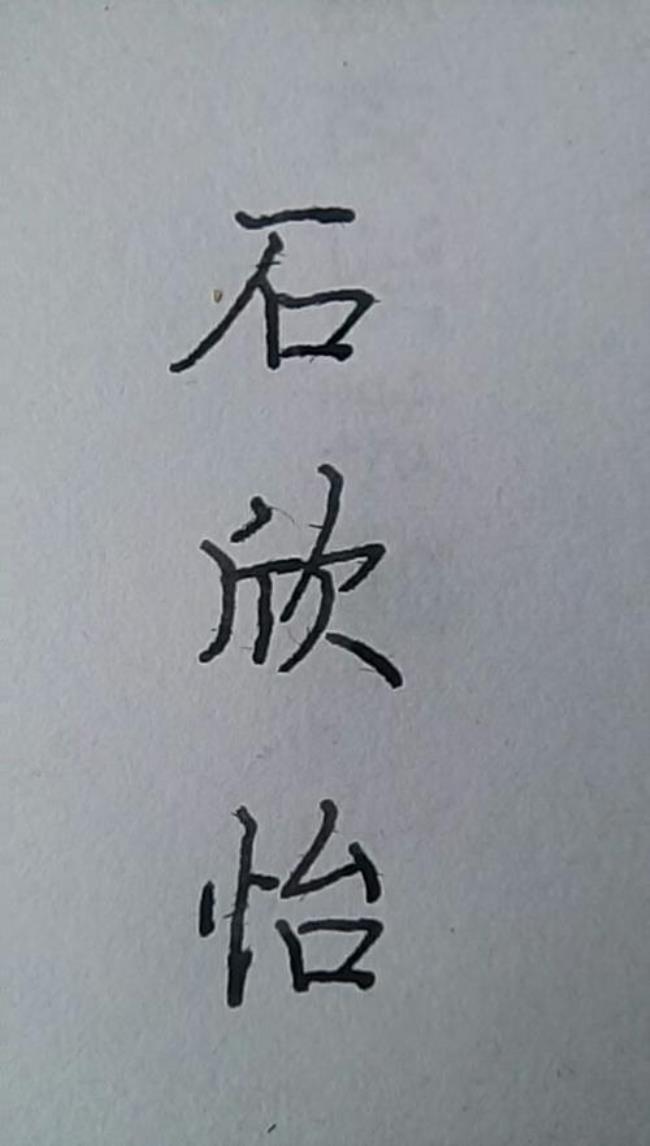 石欣怡